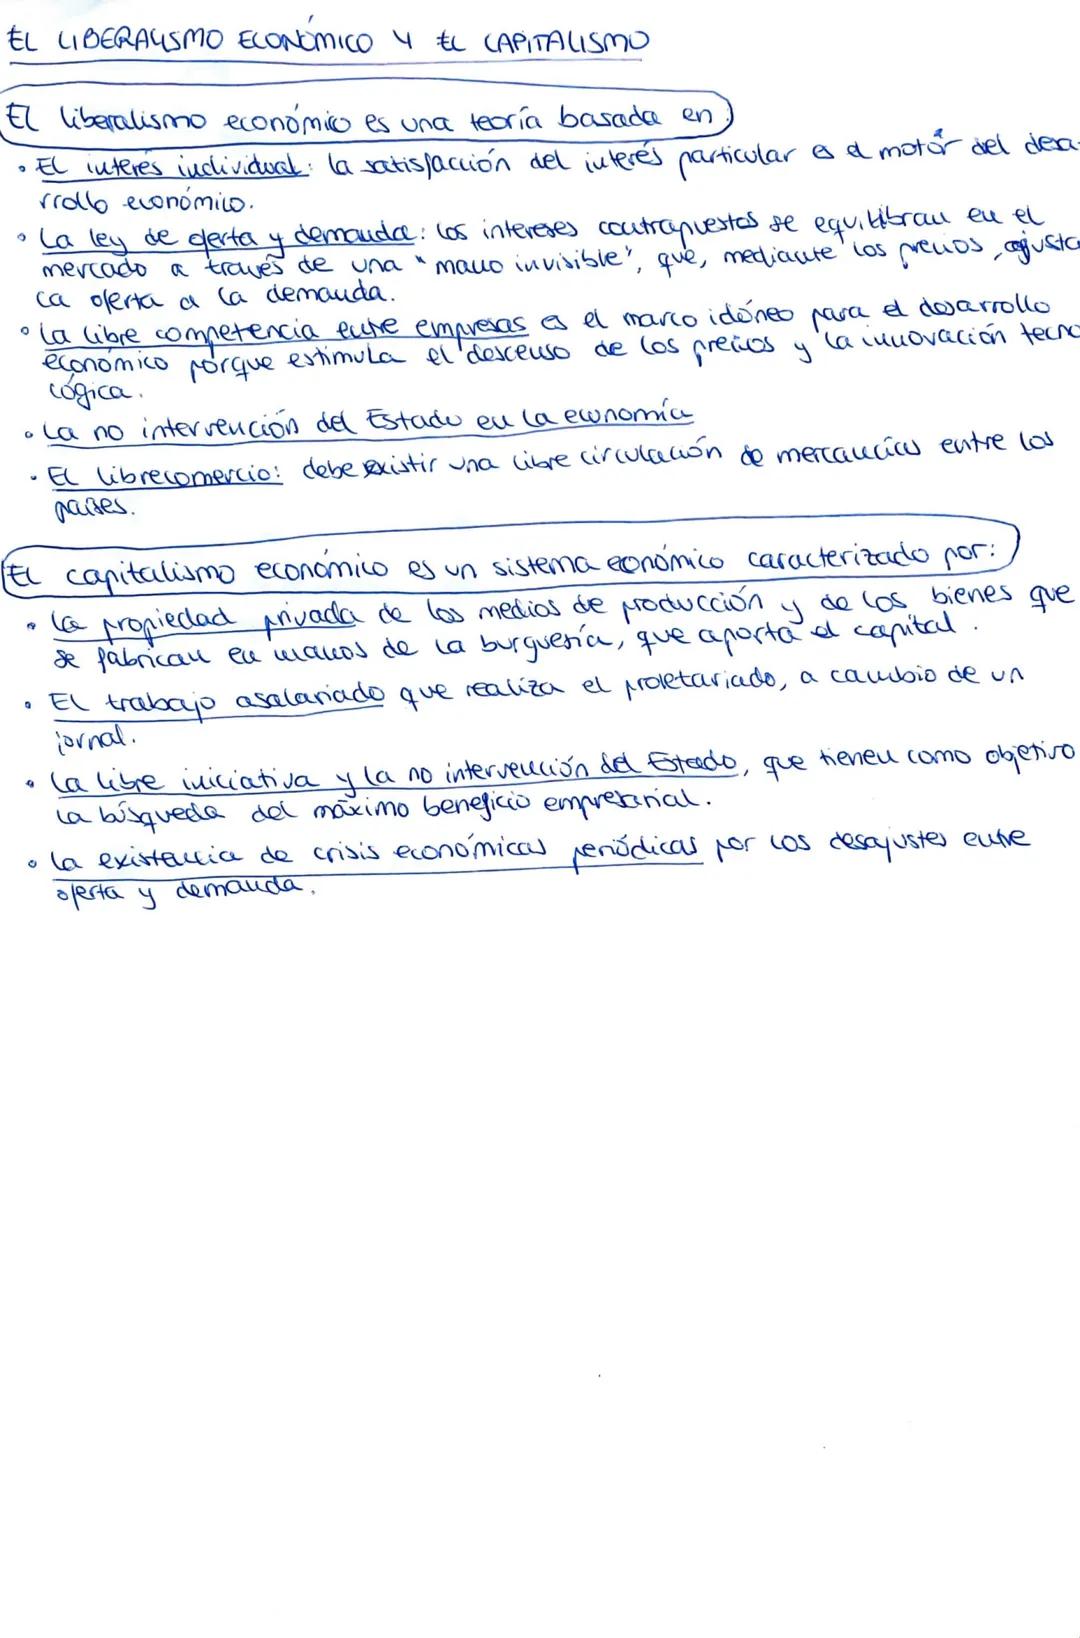 EL LIBERALISMO ECONÓMICO Y EL CAPITALISMO
El liberalismo económico es una teoría basada en:
• El interés individual: la satisfacción del interés particular es el motor del desa-
rrollo económico.
• La ley de oferta y demanda: los intereses contrapuestos se equilibran en el
mercado a través de una "mano invisible", que, mediante los precios, ajusta
la oferta a la demanda.
• La libre competencia entre empresas es el marco idóneo para el desarrollo
económico porque estimula el descenso de los precios y la innovación tecno
lógica.
• La no intervención del Estado en la economía
• El librecomercio: debe existir una libre circulación de mercancías entre los
países.
El capitalismo económico es un sistema económico caracterizado por:
• La propiedad privada de los medios de producción y de los bienes que
se fabrican en manos de la burguesía, que aporta el capital.
• El trabajo asalariado que realiza el proletariado, a cambio de un
jornal.
• La libre iniciativa y la no intervención del Estado, que tienen como objetivo
la búsqueda del máximo beneficio empresarial.
• La existencia de crisis económicas periódicas por los desajustes entre
oferta y demanda.